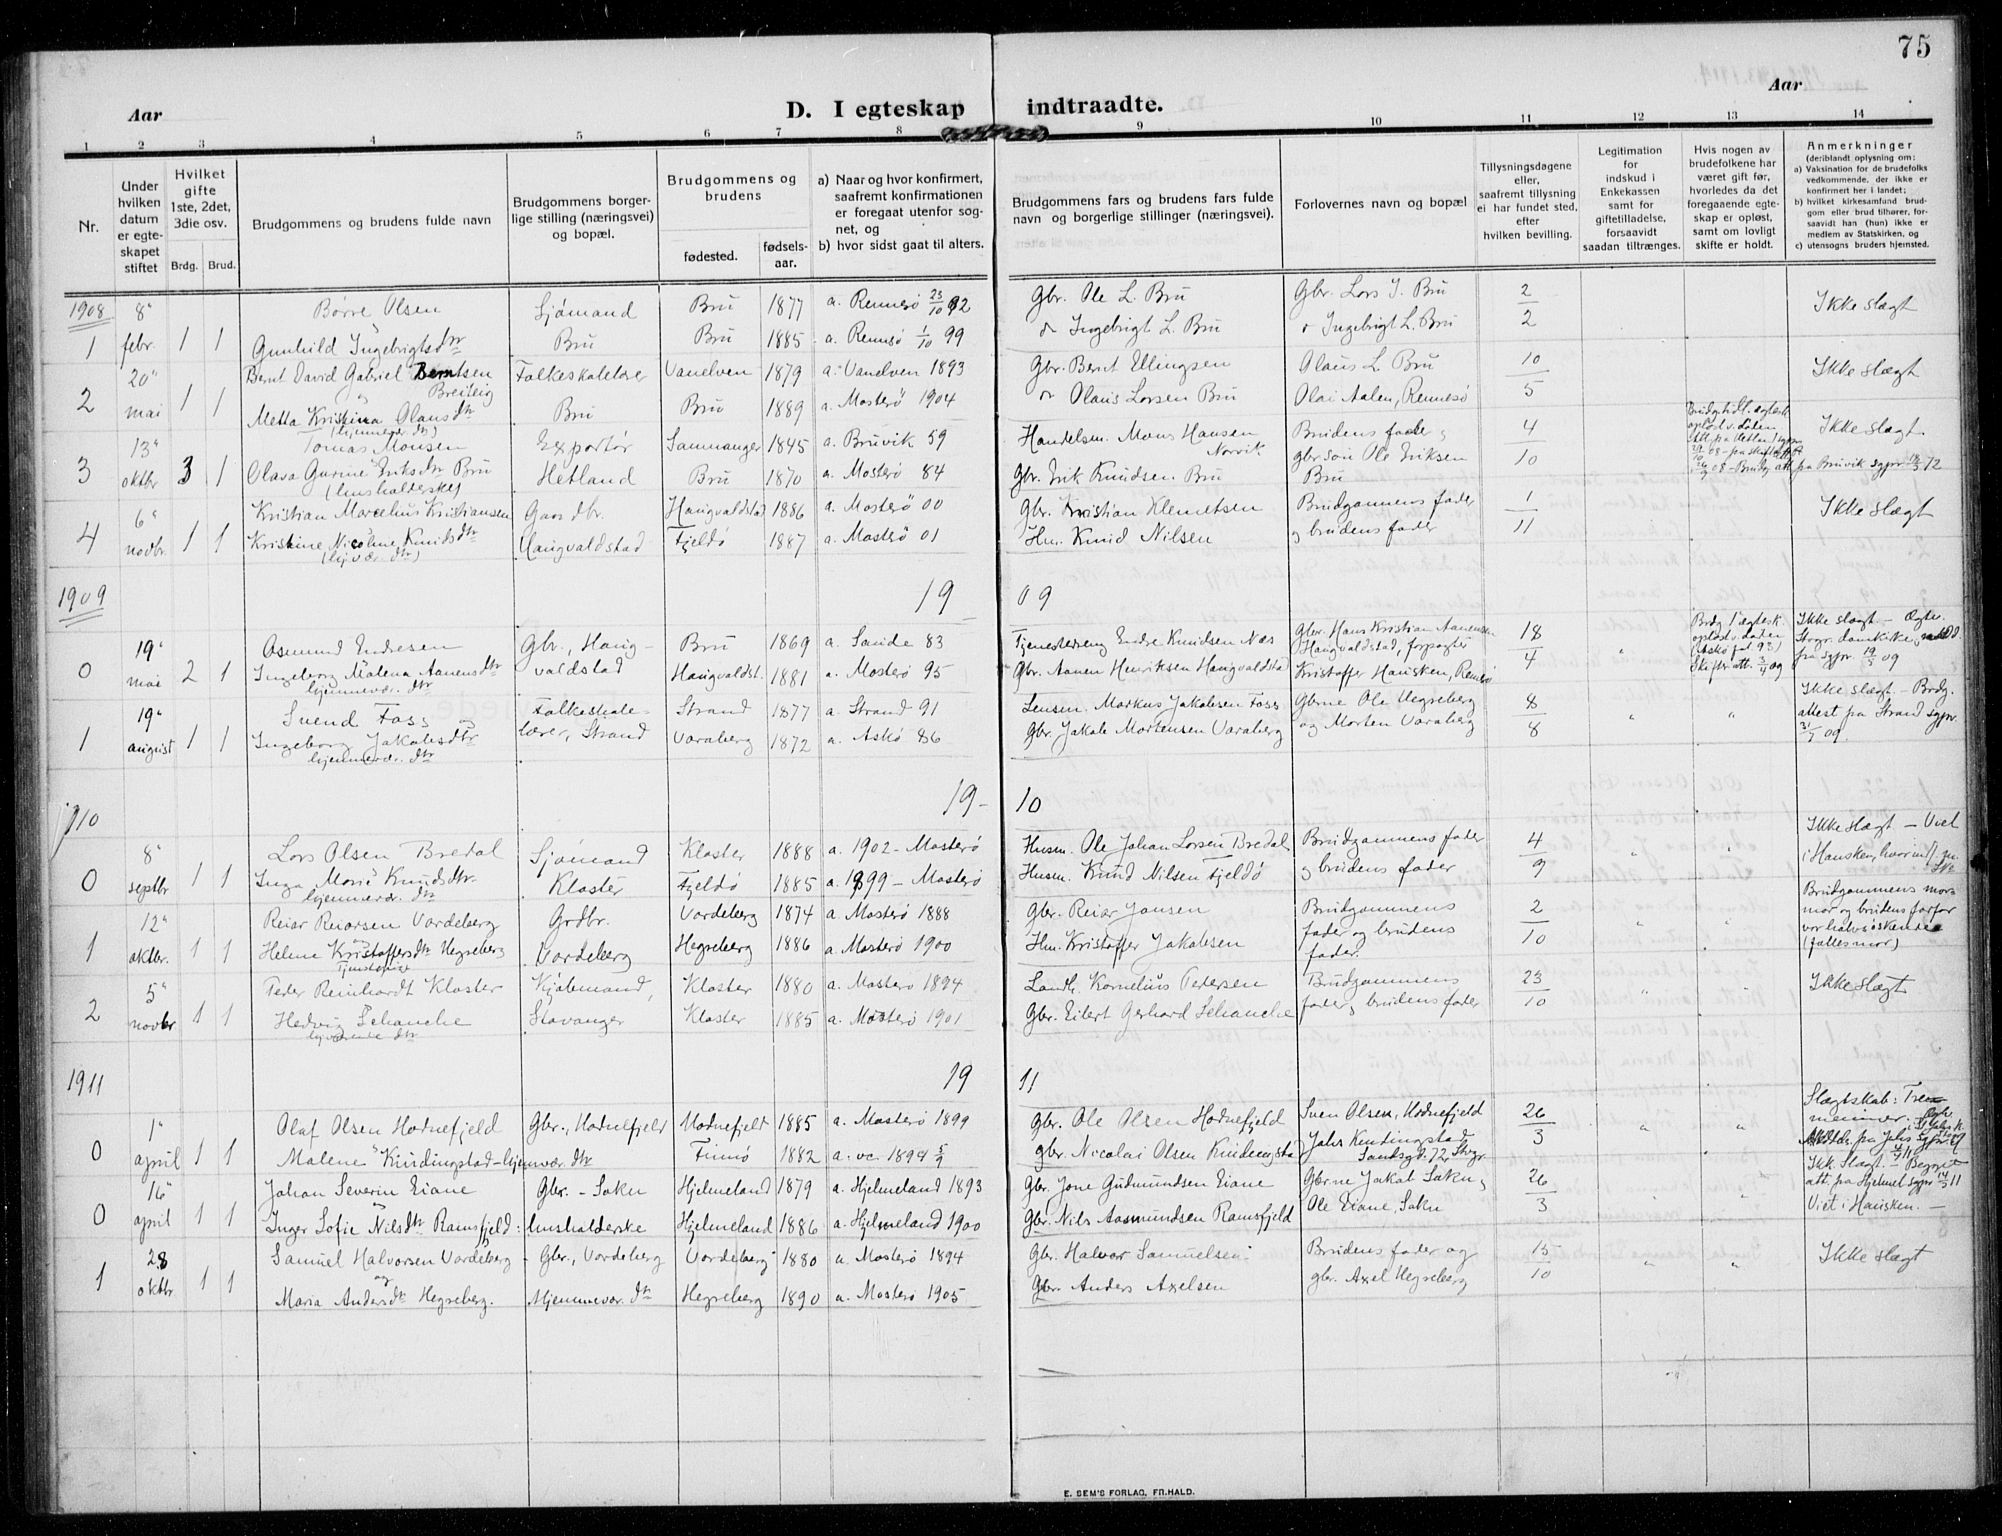 75
Aar
Aar
D. I egteskap indtraadte.
1 2 3 4 5 6 7 8 9 10 11 12 13 14
Nr.
Under hvilken datum er egteskapet stiftet
Hvilket gifte 1ste, 2det, 3die osv.
Brdg. Brud.
Brudgommens og brudens fulde navn
Brudgommens borgerlige stilling (næringsvei) og bopæl.
Brudgommens og brudens
fødested.
fødselsaar.
a) Naar og hvor konfirmert, saafremt konfirmationen er foregaat utenfor sognet, og
b) hvor sidst gaat til alters.
Brudgommens fars og brudens fars fulde navn og borgerlige stillinger (næringsvei).
Forlovernes navn og bopæl
Tillysningsdagene eller, saafremt tillysning ei har fundet sted, efter hvilken bevilling.
Legitimation for indskud i Enkekassen samt for giftetilladelse, forsaavidt saadan tiltrænges.
Hvis nogen av brudefolkene har været gift før, hvorledes da det foregaaende egteskap er opløst, samt om lovligt skifte er holdt.
Anmerkninger
(deriblandt oplysning om:
a) Vaksination for de brudefolks vedkommende, der ikke er konfirmert her i landet;
b) hvilket kirkesamfund brudgom eller brud tilhører, forsaavidt han (hun) ikke er medlem av Statskirken, og
c) utensogns bruders hjemsted.
1908 8" Børre Olsen Sjømand Bru 1877 a. Rennesø 23/10 92 Gbr. Ole L. Bru Gbr. Lars I. Bru 2/2 Ikke slægt
1 febr. 1 1 Gunhild Ingebrigtsdtr Bru Bru 1885 a. Rennesø 1/10 99 Ingebrigt L. Bru Ingebrigt L. Bru
20" Bernt David Gabriel Berntsen Breileig Folkeskolelærer Vanelven 1879 a. Vanelven 1893 Gbr. Bernt Ellingsen Olaus L. Bru 10/5 Ikke slægt
2 mai 1 1 Metta Kristina Olausdtr Bru Bru 1889 a. Mosterö 1904 Olaus Larsen Bru Olai Aalen, Rennesø
(hjemmevær. dtr)
13" Tomas Monsen Exportör Samnanger 1845 a. Bruvik 59 Handelsm. Mons Hansen Norvik Brudens fader, 4/10 Ikke slægt
3 oktbr 3 1 Olava Gurine Eriksdtr Bru Hetland Bru 1870 a. Mosterö 84 Gbr. Erik Knudsen Bru gbr søn Ole Eriksen Bru fra Bruvik sgpr
(husholderske)
6" Kristian Marcelius Kristiansen Gaardbr. Haugvaldstad 1886 a. Mosterö 00 Gbr. Kristian Klemetsen Brudgommens fader 1/11 Ikke slægt
4 novbr. 1 1 Kristine Nicoline Knudsdtr Haugvaldstad Fjeldö 1887 a. Mosterö 01 Hm. Knud Nilsen og brudens fader
(hjvær. dtr)
1909 19 09
19" Asmund Endresen Gbr., Haugvaldstad Bru 1869 a. Sande 83 Tjenestedreng Endre Knudsen Næs Gbr. Hans Kristian Aanensen Haugvaldstad, forpagter 18/4 " Brdg 1 egtesk. opløst v. døden (Askø 93) Skifteatt. 3/4 09 Ikke slægt
0 mai 2 1 Ingeborg Malena Aanensdtr Haugvaldst. 1881 a. Mosterö 95 Gbr. Aanen Henriksen Haugvaldstad Kristoffer Hausken, Rennesø fra sgpr 19/5 09
hjemmevær. dtr
19" Svend Foss Folkeskolelærer, Strand Strand 1877 a. Strand 91 Lensm. Markus Jakobsen Foss Gbrne Ole Hegreberg 8/8 " " Ikke slægt – Brdg. attest fra Strand sgpr 3/7 09.
1 august 1 1 Ingeborg Jakobsdtr Varaberg 1872 a. Askö 86 Gbr. Jakob Mortensen Varaberg og Morten Varaberg
hjemmevær. dtr
1910 19 - 10
8" Lars Olsen Bredal Sjømand Kloster 1888 a. 1902 – Mosterö Husm. Ole Johan Larsen Bredal Brudgommens fader 4/9 " " Ikke slægt – Viet i Hausken,
0 septbr 1 1 Inga Marie Knudsdtr. Kloster Fjeldö 1885 a. 1899 – Mosterö Husm. Knud Nilsen Fjeldö og brudens fader
hjemmevær. dtr
12" Reiar Reiarsen Vardeberg Grdbr. Vardeberg 1874 a. Mosterö 1888 Gbr. Reiar Jansen Brudgommens 2/10 " " Brudgommens mormor og brudens farfar var halvsøskende (fælles mor)
1 oktbr. 1 1 Helene Kristoffersdtr Hegreberg Vardeberg Hegreberg 1886 a. Mosterö 1900 Hm. Kristoffer Jakobsen fader og brudens fader.
5" Peder Reinhardt Kloster Kjøbmand, Kloster 1880 a. Mosterö 1894 Landh. Kornelius Pedersen Brudgommens 23/10 " " Ikke slægt
2 novbr 1 1 Hedvig Schanche Stavanger Kloster 1885 a. Mosterö 1901 Gbr. Eilert Gerhard Schanche fader og brudens fader
hjværende dtr
1911 19 11
1" Olaf Olsen Hodnefjeld Gbr., Hodnefjeld Hodnefjeld 1885 a. Mosterö 1899 Gbr. Ole Olsen Hodnefjeld Sven Olsen, Hodnefjeld 26/3 " " Slægtskab: Tremenninger.
0 april 1 1 Malene Kindingstad – hjemmevær. dtr Finnö 1882 a. 1894 gbr. Nicolai Olsen Kindingstad Johs Kindingstad
16" Johan Severin Eiane Gbr. – Sokn Hjelmeland 1879 a. Hjelmeland 1893 Gbr. Jone Gudmundsen Eiane Gbrne Jakob Sokn, 26/3 Ikk. Slægt. – att. fra Hjelmel sgpr
0 april 1 1 Inger Sofie Nilsdtr. Ramsfjeld: husholderske Hjelmeland 1886 a. Hjelmeland 1900 Gbr. Nils Aasmundsen Ramsfjeld Ole Eiane, Sokn Viet i Hausken. –
28 Samuel Halvorsen Vardeberg – Gbr., Vardeberg Vardeberg 1880 a. Mosterö 1894 Gbr. Halvor Samuelsen Brudens fader og 15/10 " " Ikke slægt
1 oktbr 1 1 og
Maria Andersdtr Hegreberg. Hjemmevær. dtr Hegreberg 1890 a. Mosterö 1905 Gbr. Anders Axelsen gbr. Axel Hegreberg
E. SEM'S FORLAG, FR.HALD.